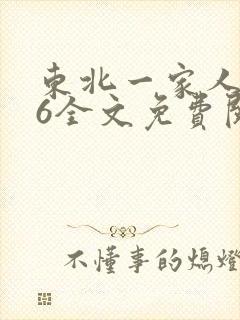 東北一家人
6全文免費閱
不懂事的熄燈